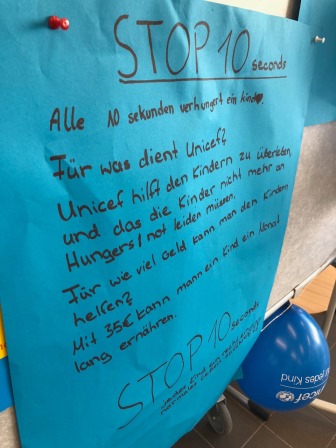 STOP 10 seconds
Alle 10 sekunden verhungert ein Kind.
Für was dient Unicef?
Unicef hilft den Kindern zu überleben,
und das die Kinder nicht mehr an
Hungers/not leiden müssen.
Für wie viel Geld kann man den Kindern
helfen?
Mit 35€ kann mann ein Kind ein Monat
lang ernähren.
STOP 10 seconds
Jedes Kind
unicef
jedes Kind